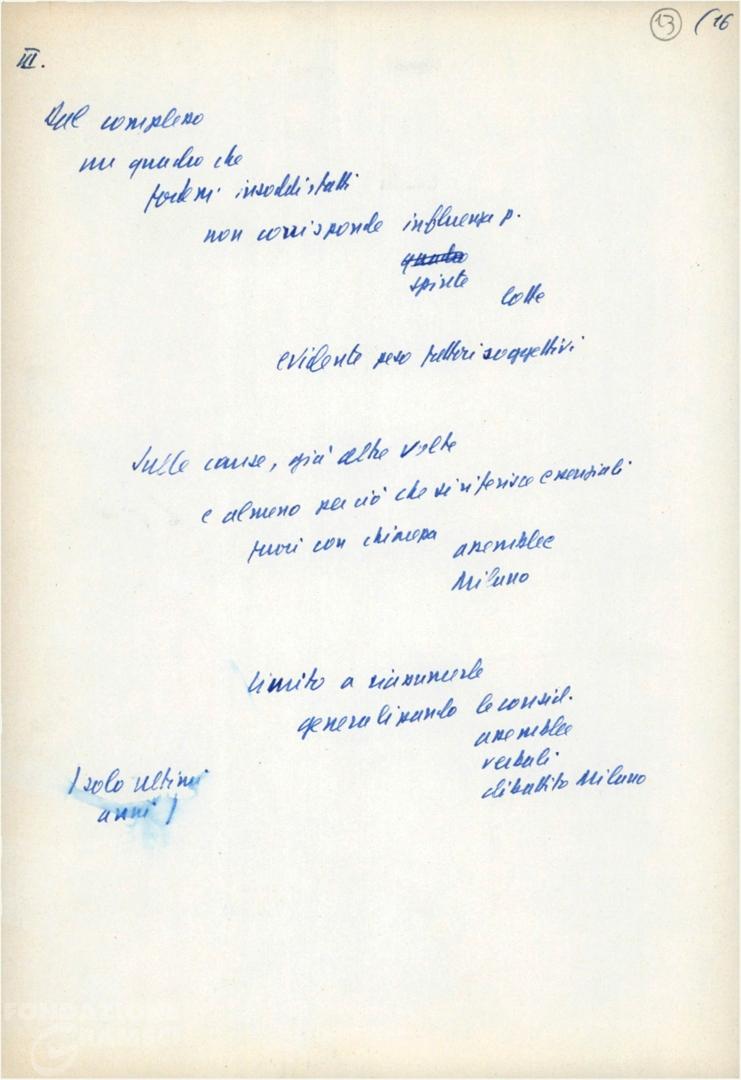 13 (16
III.
Dal complesso
un quadro che
insoddisfatti
non corrisponde influenza p.
spinte
lotte
evidente peso fattori soggettivi
Sulle cause, già altre volte
e almeno per ciò che si riferisce essenziali
fuori con chiarezza assemblee
Milano
limito a riassumerle
generalizzando le consid.
assemblee
verbali
dibattito Milano
/ solo ultimi
anni /
FONDAZIONE
GRAMSCI